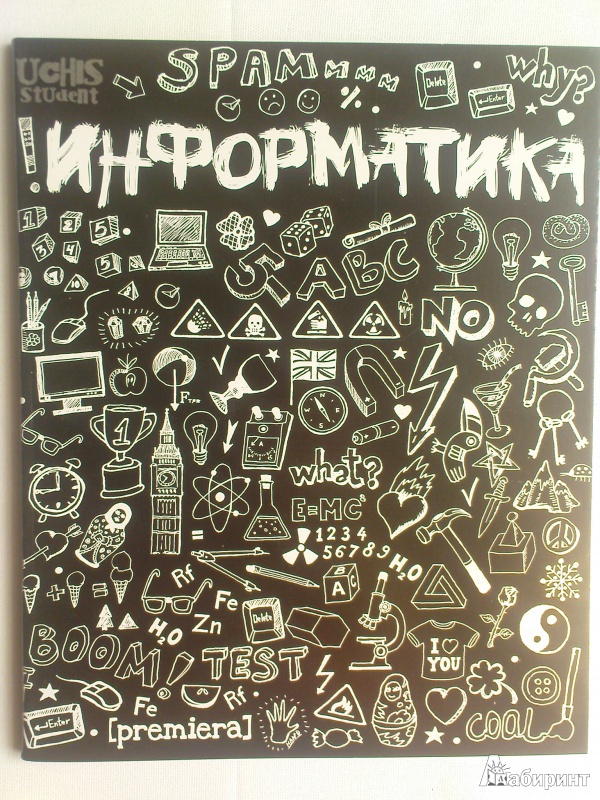 UCHIS
student
SPAM м м м м
Delete
Enter
why?
%
ИНФОРМАТИКА
1 2 5
3 4
5
5 ABC
NO
Fтр
1
what?
E=MC²
1 2 3 4
5 6 7 8 9
H₂O
A C
Rf
Fe
Zn
H₂O
Delete
I ♥
YOU
BOOM!
TEST
Fe
Rf
Enter
[premiera]
COOL
Лабиринт